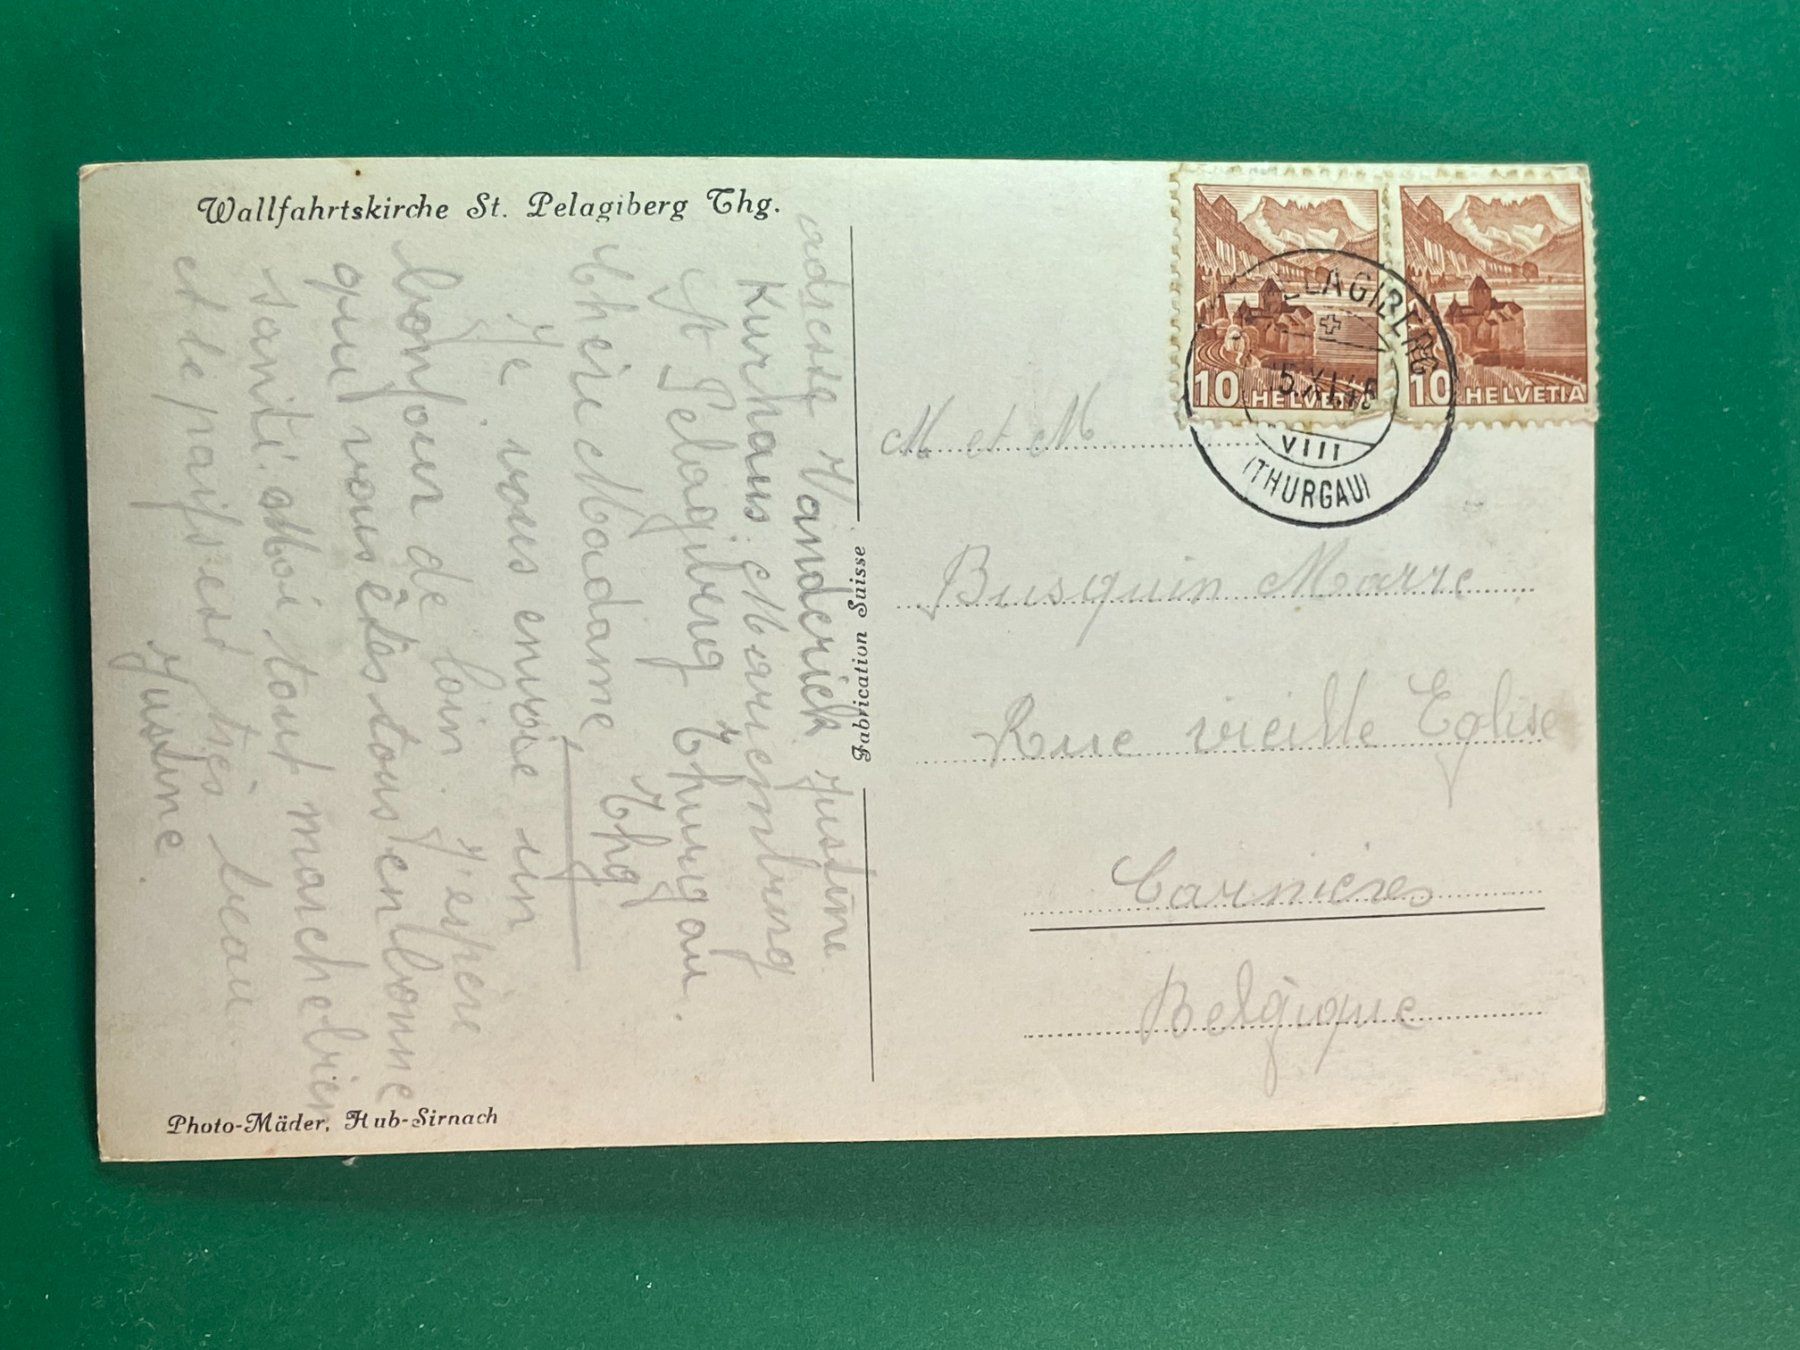 Wallfahrtskirche St. Pelagiberg Thg.
adresse Vanderick Justine
Kurhaus Marienburg
St Pelagiberg Thurgau.
Thg
Chere Madame
Je vous envoie un
bonjour de loin j'espere
que vous êtes tous en bonne
santé. Moi tout marche bien
et le pays est très beau.
Justine.
Photo-Mäder, Hub-Sirnach
Fabrication Suisse
10 HELVETIA
10 HELVETIA
PELAGIBERG
VIII
(THURGAU)
M et M
Busquin Marre
Rue vieille Eglise
Carnières
Belgique